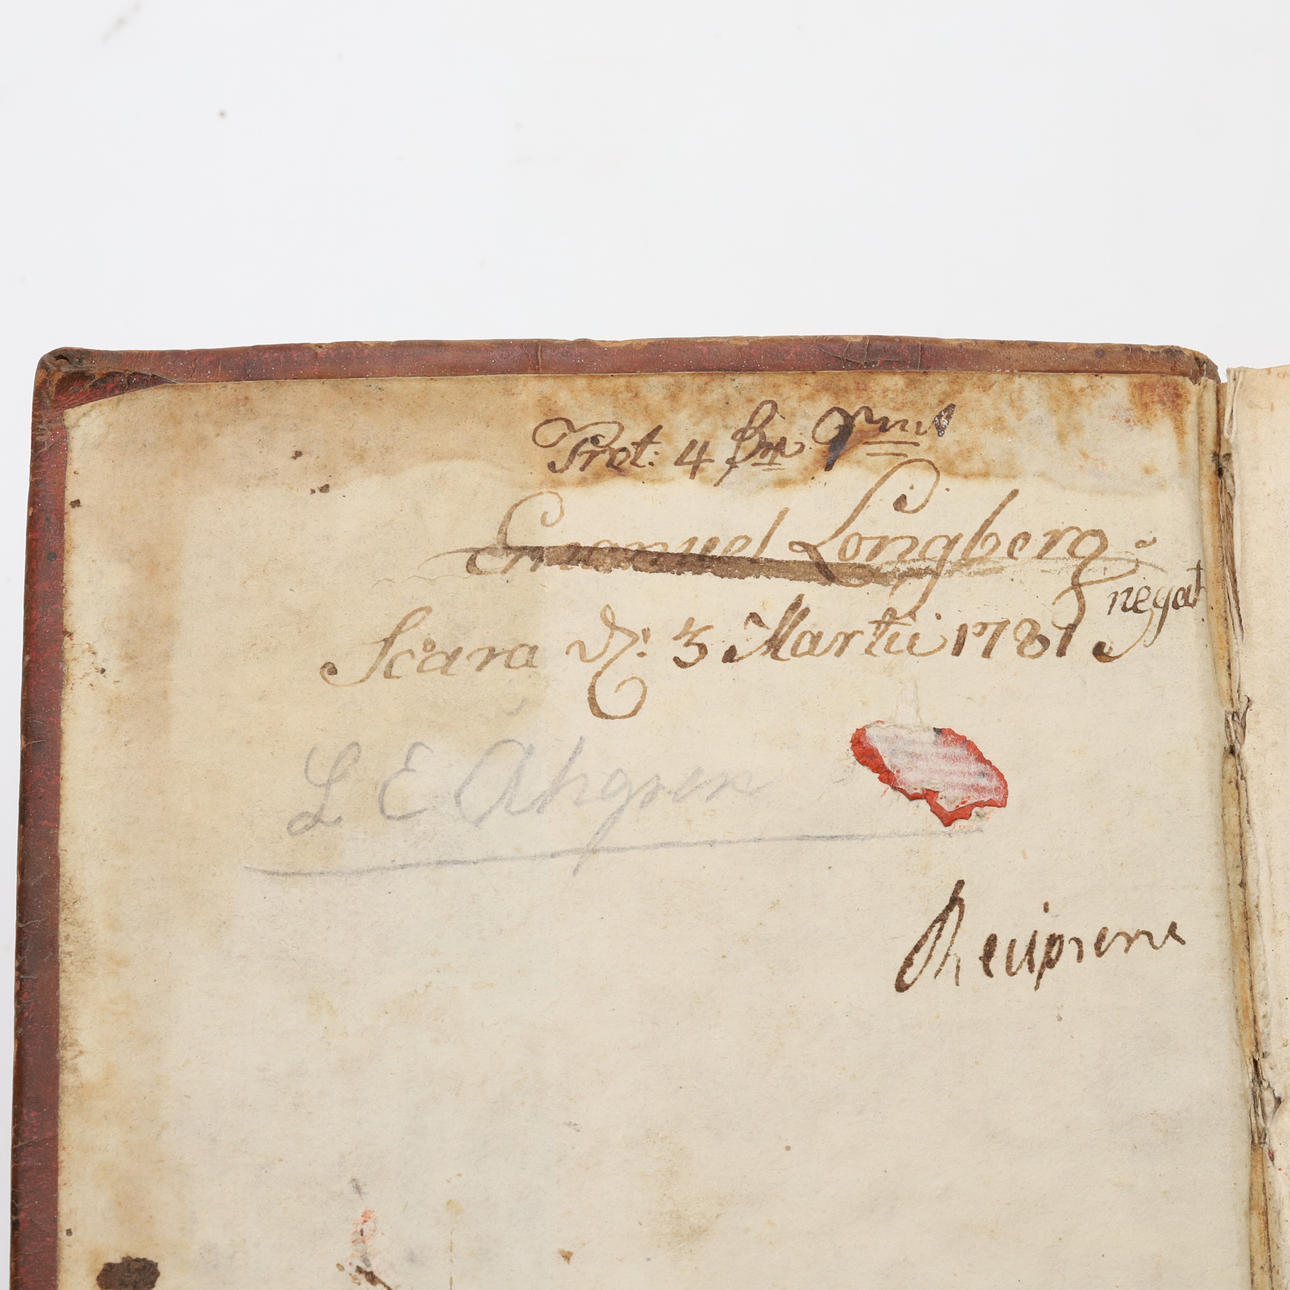 Pret. 4
Emanuel Longberg
negat
Scara d: 3 Martii 1781
L E Ahgren